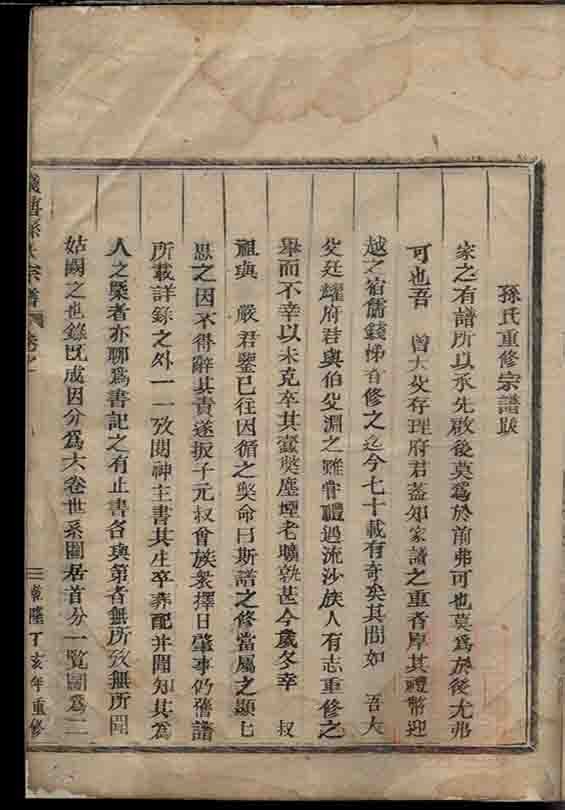 孫氏重修宗譜跋
家之有譜所以承先啟後莫爲於前弗可也莫爲於後尤弗
可也吾 曾大父存理府君蓋知家譜之重者厚其禮幣迎
越之宿儒錢梯青修之迄今七十載有奇矣其間如 吾大
父廷耀府君與伯父淵之雖嘗禮過流沙族人有志重修之
舉而不幸以未克卒其蠹獘塵煙老壙孰甚今歲冬幸 叔
祖典 嚴君鑒已往因循之獘命曰斯譜之修當屬之顯七
思之因不得辭其責遂扳子元叔會族衆擇日肇事仍舊譜
所載詳錄之外一一攷閱神主書其生卒葬配并聞知其爲
人之槩者亦聊爲書記之有止書名與第者無所攷無所聞
姑闕之也錄旣成因分爲六卷世系圖居首分一覽圖爲二
孫氏宗譜 卷之一
乾隆丁亥年重修